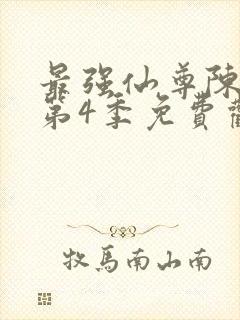 最强仙尊陳
第4季免費
牧馬南山南